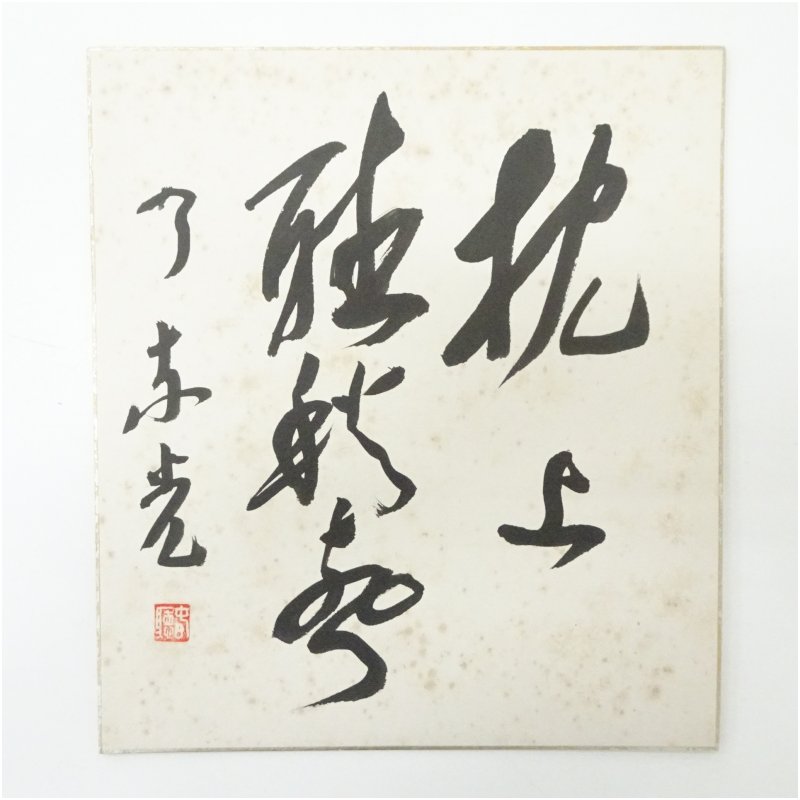 枕上
聴秋声
了 東光